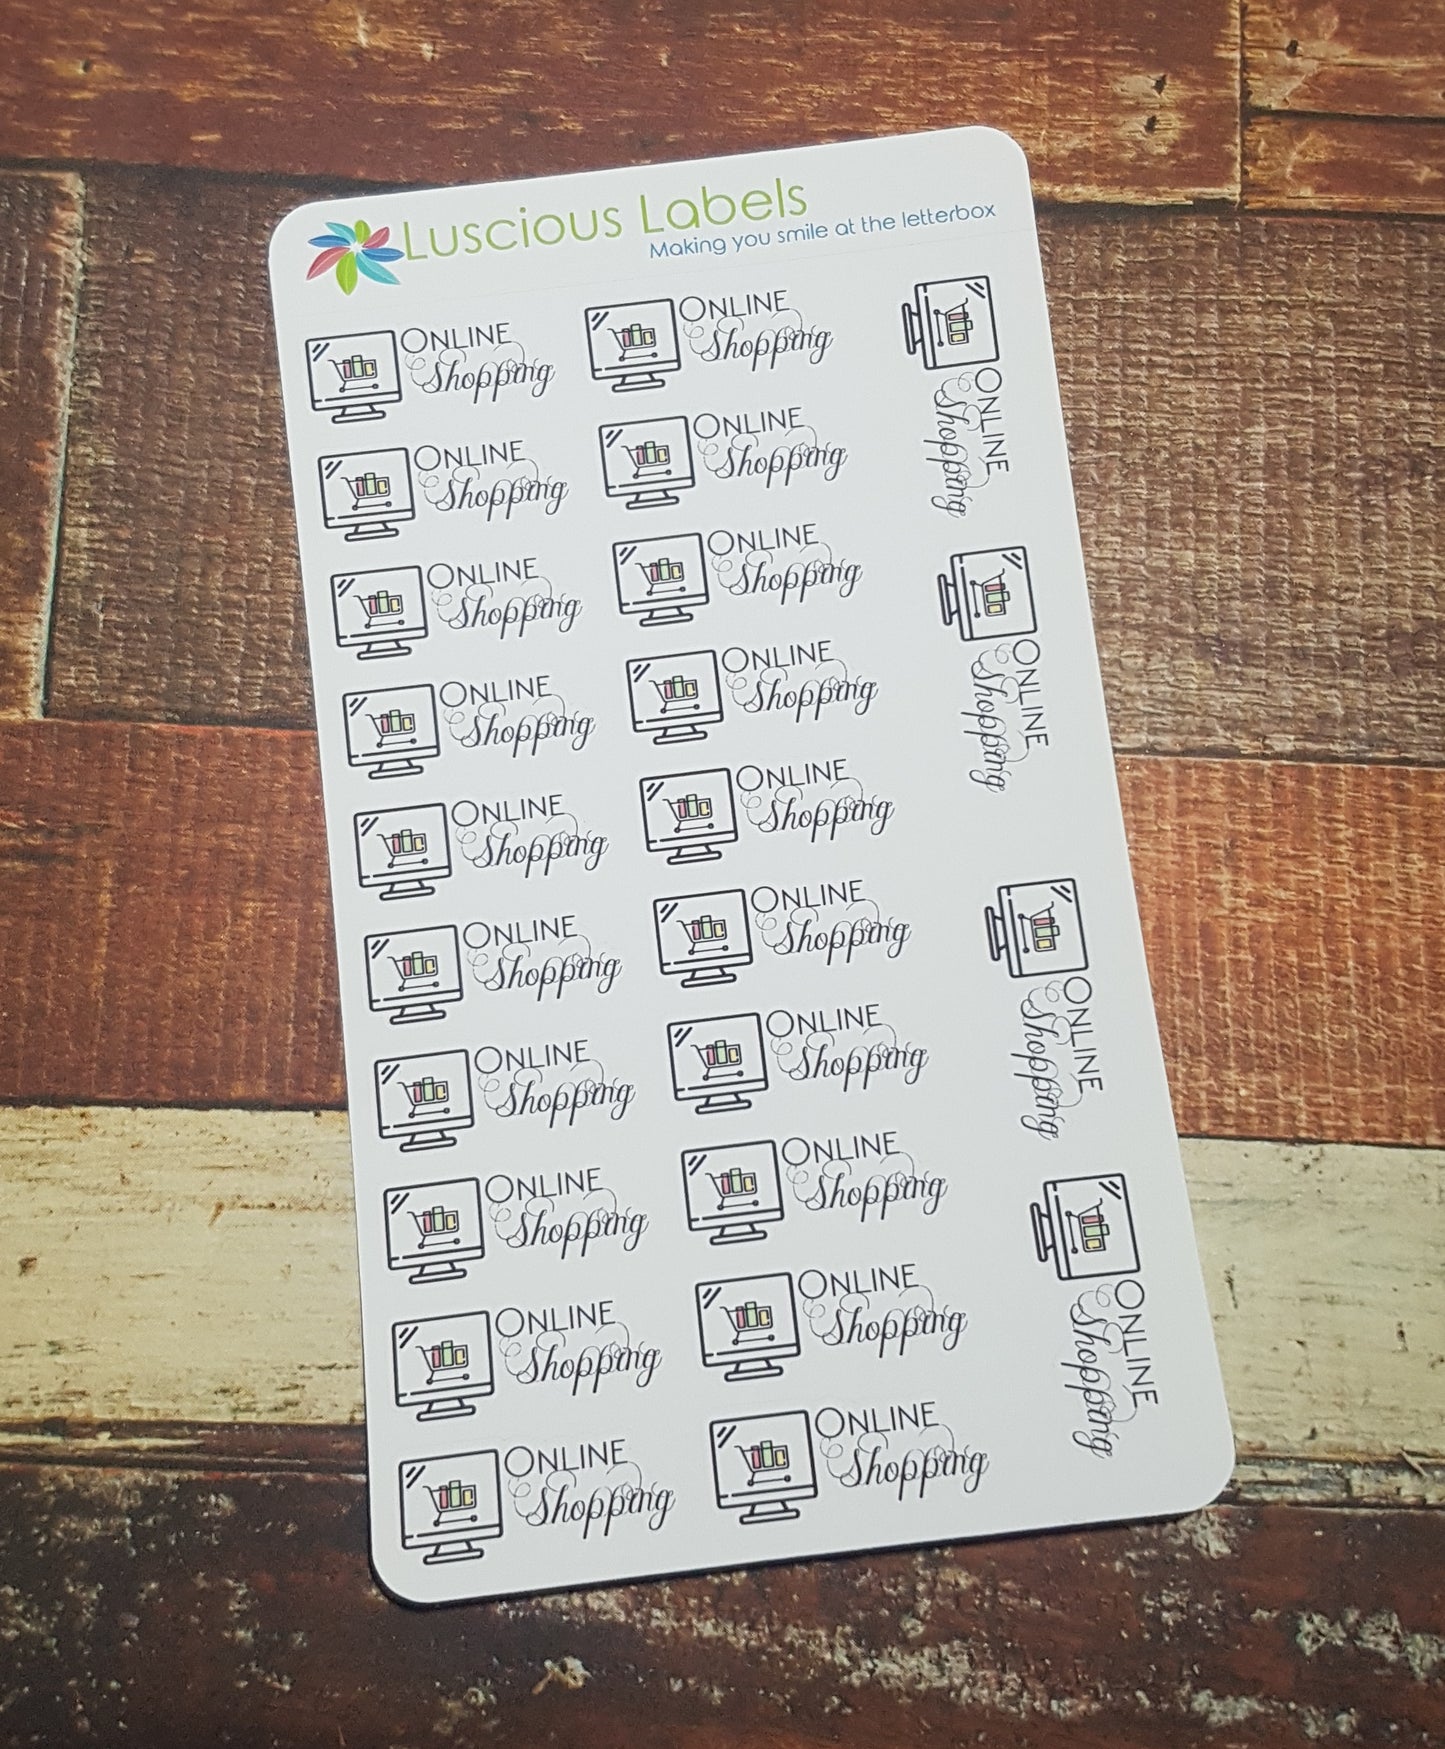 Luscious Labels
Making you smile at the letterbox
ONLINE
Shopping
ONLINE
Shopping
ONLINE
Shopping
ONLINE
Shopping
ONLINE
Shopping
ONLINE
Shopping
ONLINE
Shopping
ONLINE
Shopping
ONLINE
Shopping
ONLINE
Shopping
ONLINE
Shopping
ONLINE
Shopping
ONLINE
Shopping
ONLINE
Shopping
ONLINE
Shopping
ONLINE
Shopping
ONLINE
Shopping
ONLINE
Shopping
ONLINE
Shopping
ONLINE
Shopping
ONLINE
Shopping
ONLINE
Shopping
ONLINE
Shopping
ONLINE
Shopping